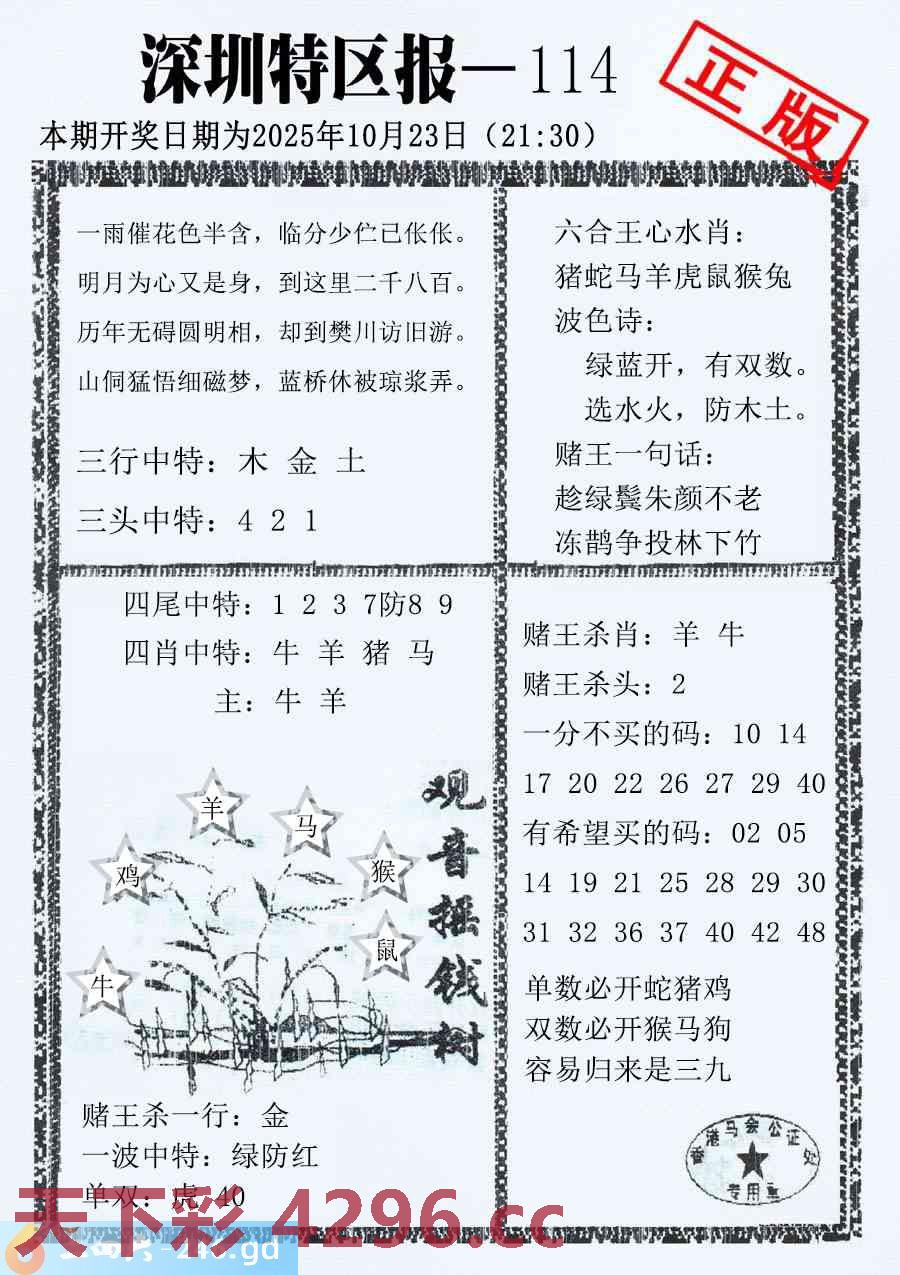 深圳特区报—114
正版
本期开奖日期为2025年10月23日（21:30）
一雨催花色半含，临分少伫已伥伥。
明月为心又是身，到这里二千八百。
历年无碍圆明相，却到樊川访旧游。
山侗猛悟细磁梦，蓝桥休被琼浆弄。
三行中特：木 金 土
三头中特：4 2 1
六合王心水肖：
猪蛇马羊虎鼠猴兔
波色诗：
绿蓝开，有双数。
选水火，防木土。
赌王一句话：
趁绿鬓朱颜不老
冻鹊争投林下竹
四尾中特：1 2 3 7防8 9
四肖中特：牛 羊 猪 马
主：牛 羊
羊
马
鸡
猴
鼠
牛
观音摇钱树
赌王杀一行：金
一波中特：绿防红
单双：虎 40
赌王杀肖：羊 牛
赌王杀头：2
一分不买的码：10 14
17 20 22 26 27 29 40
有希望买的码：02 05
14 19 21 25 28 29 30
31 32 36 37 40 42 48
单数必开蛇猪鸡
双数必开猴马狗
容易归来是三九
香港马会公证处
专用章
天下彩 4296.cc